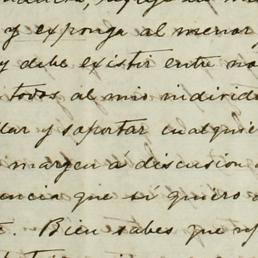 y exponga al menor
y debe existir entre no
todos al mio individ
lar y soportar cualquie
margen á discusion
encia que si quiero
. Bien sabes que